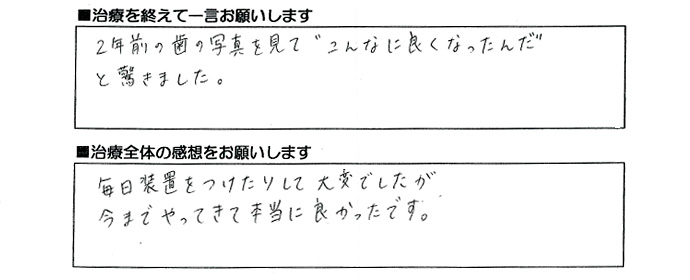 ■治療を終えて一言お願いします
2年前の歯の写真を見て"こんなに良くなったんだ"
と驚きました。
■治療全体の感想をお願いします
毎日装置をつけたりして大変でしたが
今までやってきて本当に良かったです。